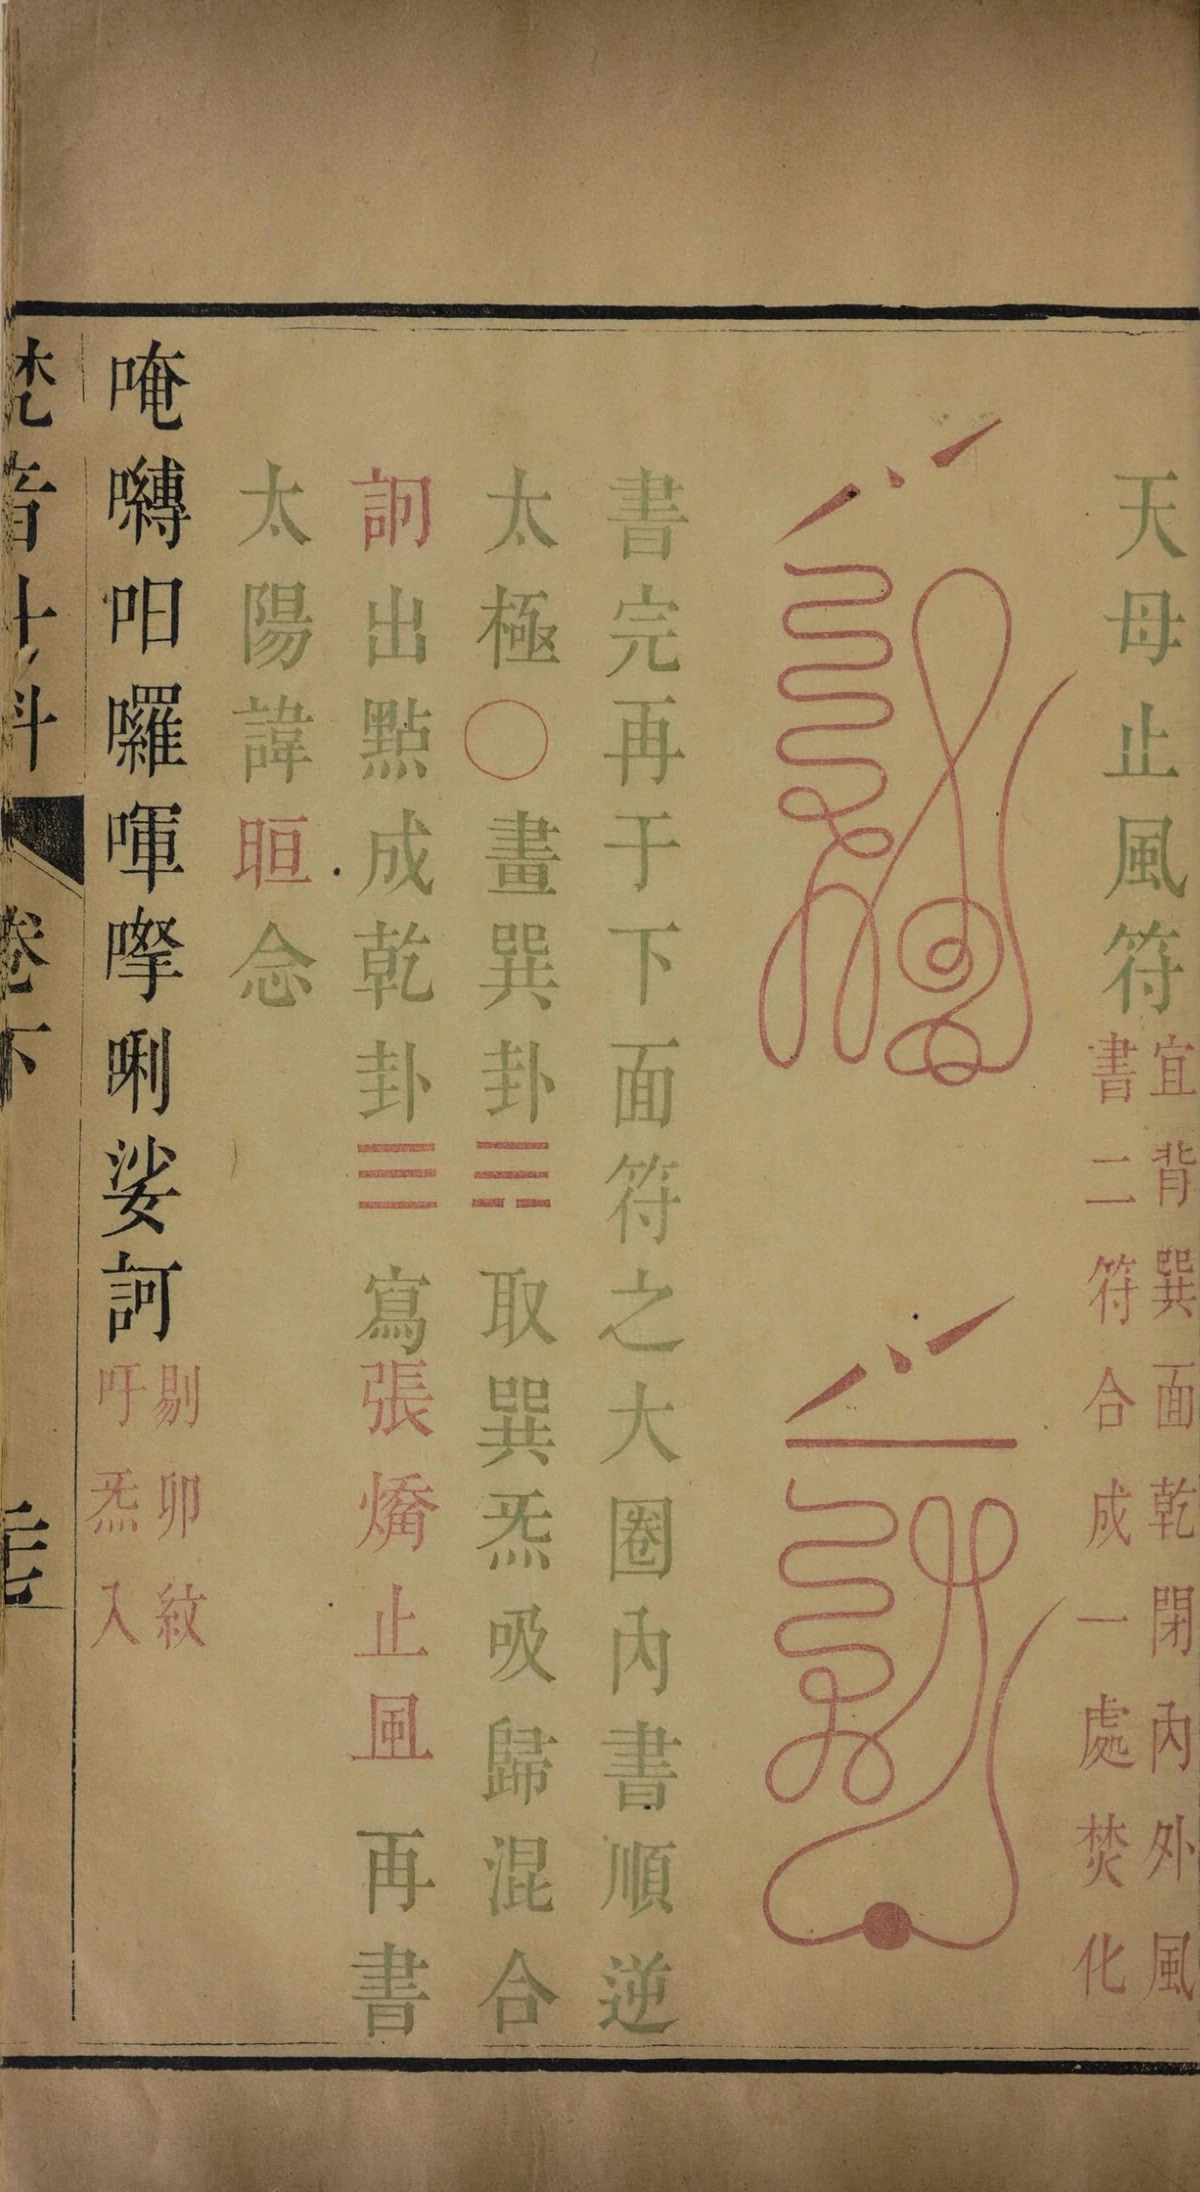 天母止風符
宜背巽面乾閉內外風
書二符合成一處焚化
書完再于下面符之大圈內書順逆
太極〇畫巽卦☴取巽炁吸歸混合
訶出點成乾卦☰寫張燏止風再書
太陽諱晅念
唵嚩呬囉喗嚤唎娑訶
剔卯紋
吁炁入
梵音斗科 卷下 二十七